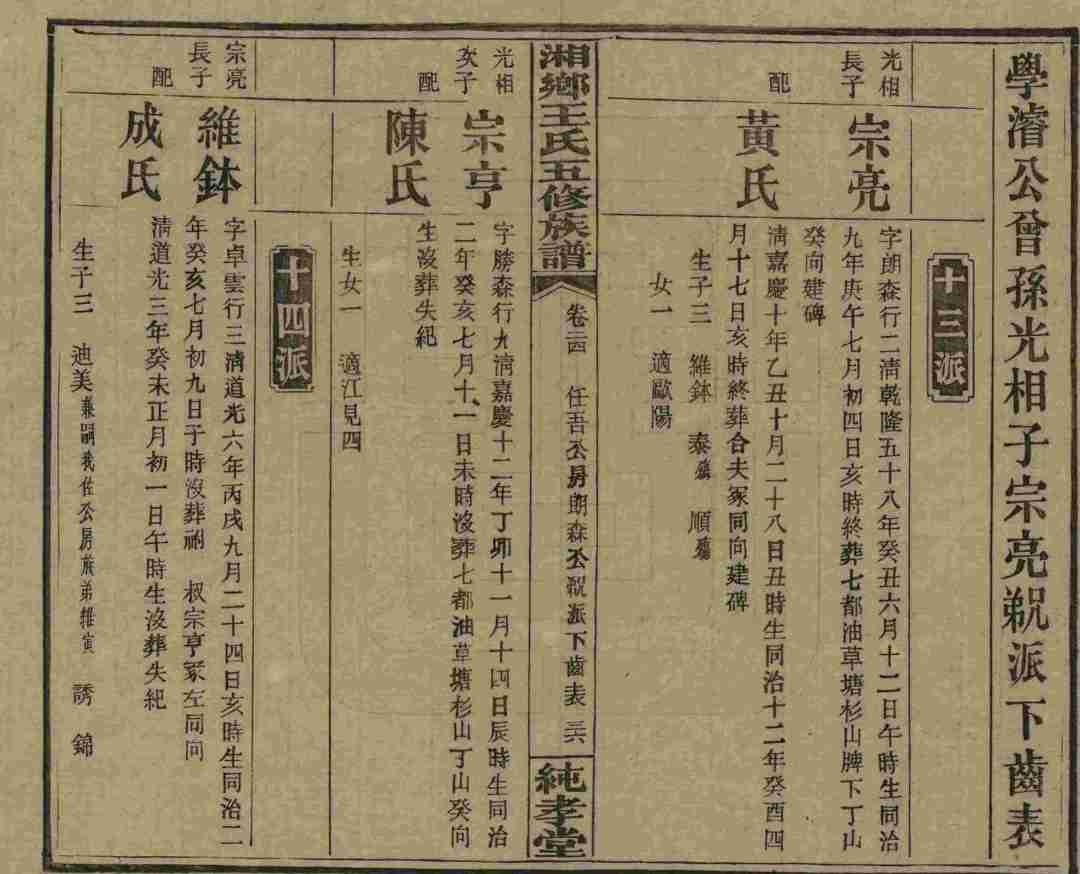 學濬公曾孫光相子宗亮派下齒表
十三派
光相
長子
宗亮
字朗森行二清乾隆五十八年癸丑六月十二日午時生同治
九年庚午七月初四日亥時終葬七都油草塘杉山牌下丁山
癸向建碑
配
黃氏
清嘉慶十年乙丑十月二十八日丑時生同治十二年癸酉四
月十七日亥時終葬合夫冢同向建碑
生子三 維鉢 泰殤 順殤
女一 適歐陽
湘鄉王氏五修族譜
卷 任吾公房朗森公派下齒表
純孝堂
光相
次子
宗亨
字勝森行九清嘉慶十二年丁卯十一月十四日辰時生同治
二年癸亥七月十一日未時沒葬七都油草塘杉山丁山癸向
配
陳氏
生沒葬失紀
生女一 適江見四
十四派
宗亮
長子
維鉢
字卓雲行三清道光六年丙戌九月二十四日亥時生同治二
年癸亥七月初九日子時沒葬祔 叔宗亨冢左同向
配
成氏
清道光三年癸未正月初一日午時生沒葬失紀
生子三 迪美兼嗣我佐公房族弟維寅 誘 錦